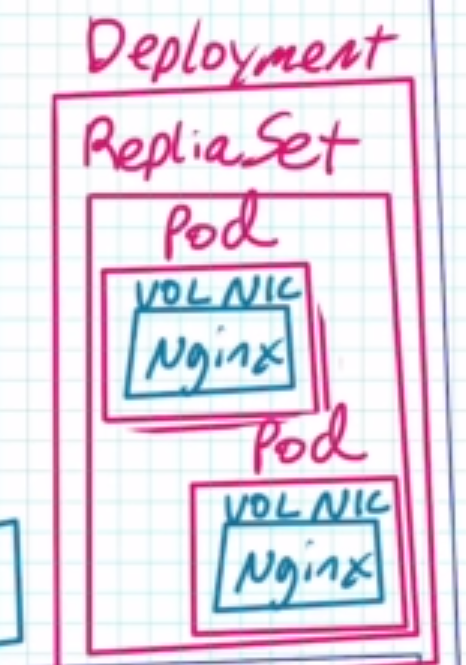 Deployment
RepliaSet
Pod
VOL NIC
Nginx
Pod
VOL NIC
Nginx